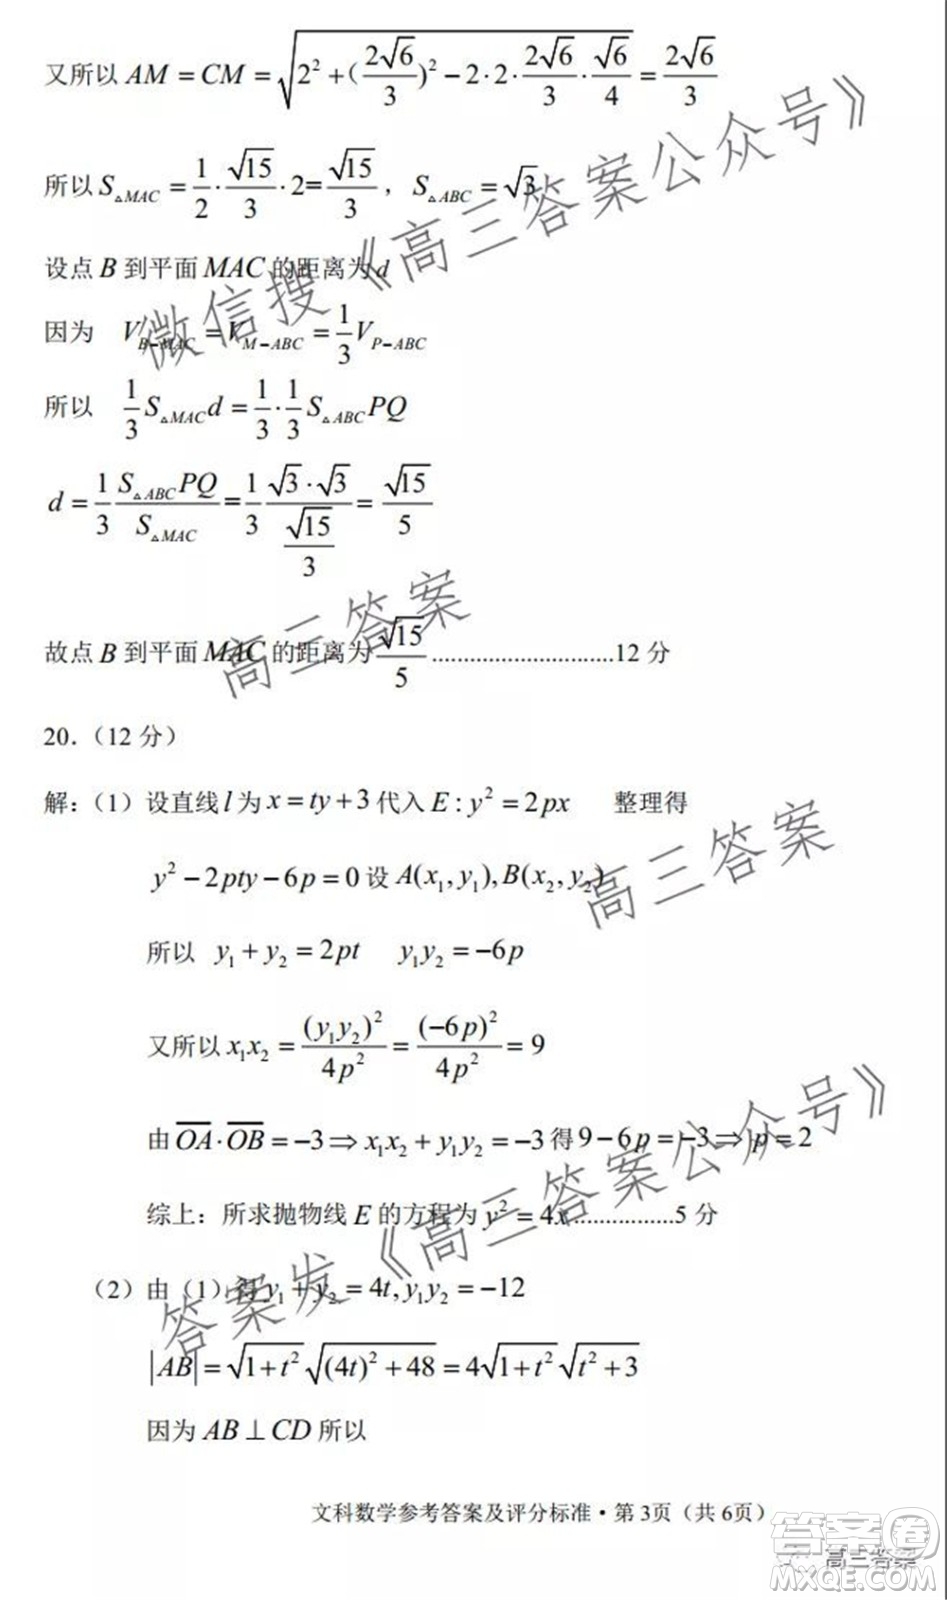 又所以 AM = CM = √(2² + (2√6/3)² − 2·2·2√6/3·√6/4) = 2√6/3
所以 S△MAC = 1/2·√15/3·2 = √15/3 , S△ABC = √3
设点 B 到平面 MAC 的距离为 d
因为 V_{B−MAC} = V_{M−ABC} = 1/3 V_{P−ABC}
所以 1/3 S△MAC d = 1/3·1/3 S△ABC PQ
d = 1/3 S△ABC PQ / S△MAC = 1/3 (√3·√3)/(√15/3) = √15/5
故点 B 到平面 MAC 的距离为 √15/5 .............................12 分
20.（12 分）
解：（1）设直线 l 为 x = ty + 3 代入 E : y² = 2px 整理得
y² − 2pty − 6p = 0 设 A(x₁, y₁), B(x₂, y₂)
所以 y₁ + y₂ = 2pt y₁y₂ = −6p
又所以 x₁x₂ = (y₁y₂)²/4p² = (−6p)²/4p² = 9
由 OA · OB = −3 ⇒ x₁x₂ + y₁y₂ = −3 得 9 − 6p = −3 ⇒ p = 2
综上：所求抛物线 E 的方程为 y² = 4x ................5 分
（2）由（1）得 y₁ + y₂ = 4t, y₁y₂ = −12
|AB| = √(1+t²) √((4t)² + 48) = 4√(1+t²) √(t² + 3)
因为 AB ⊥ CD 所以
文科数学参考答案及评分标准·第 3页（共 6页）
微信搜《高三答案公众号》
高三答案
高三答案
答案发《高三答案公众号》
答案圈
高三答案
MXQE.COM